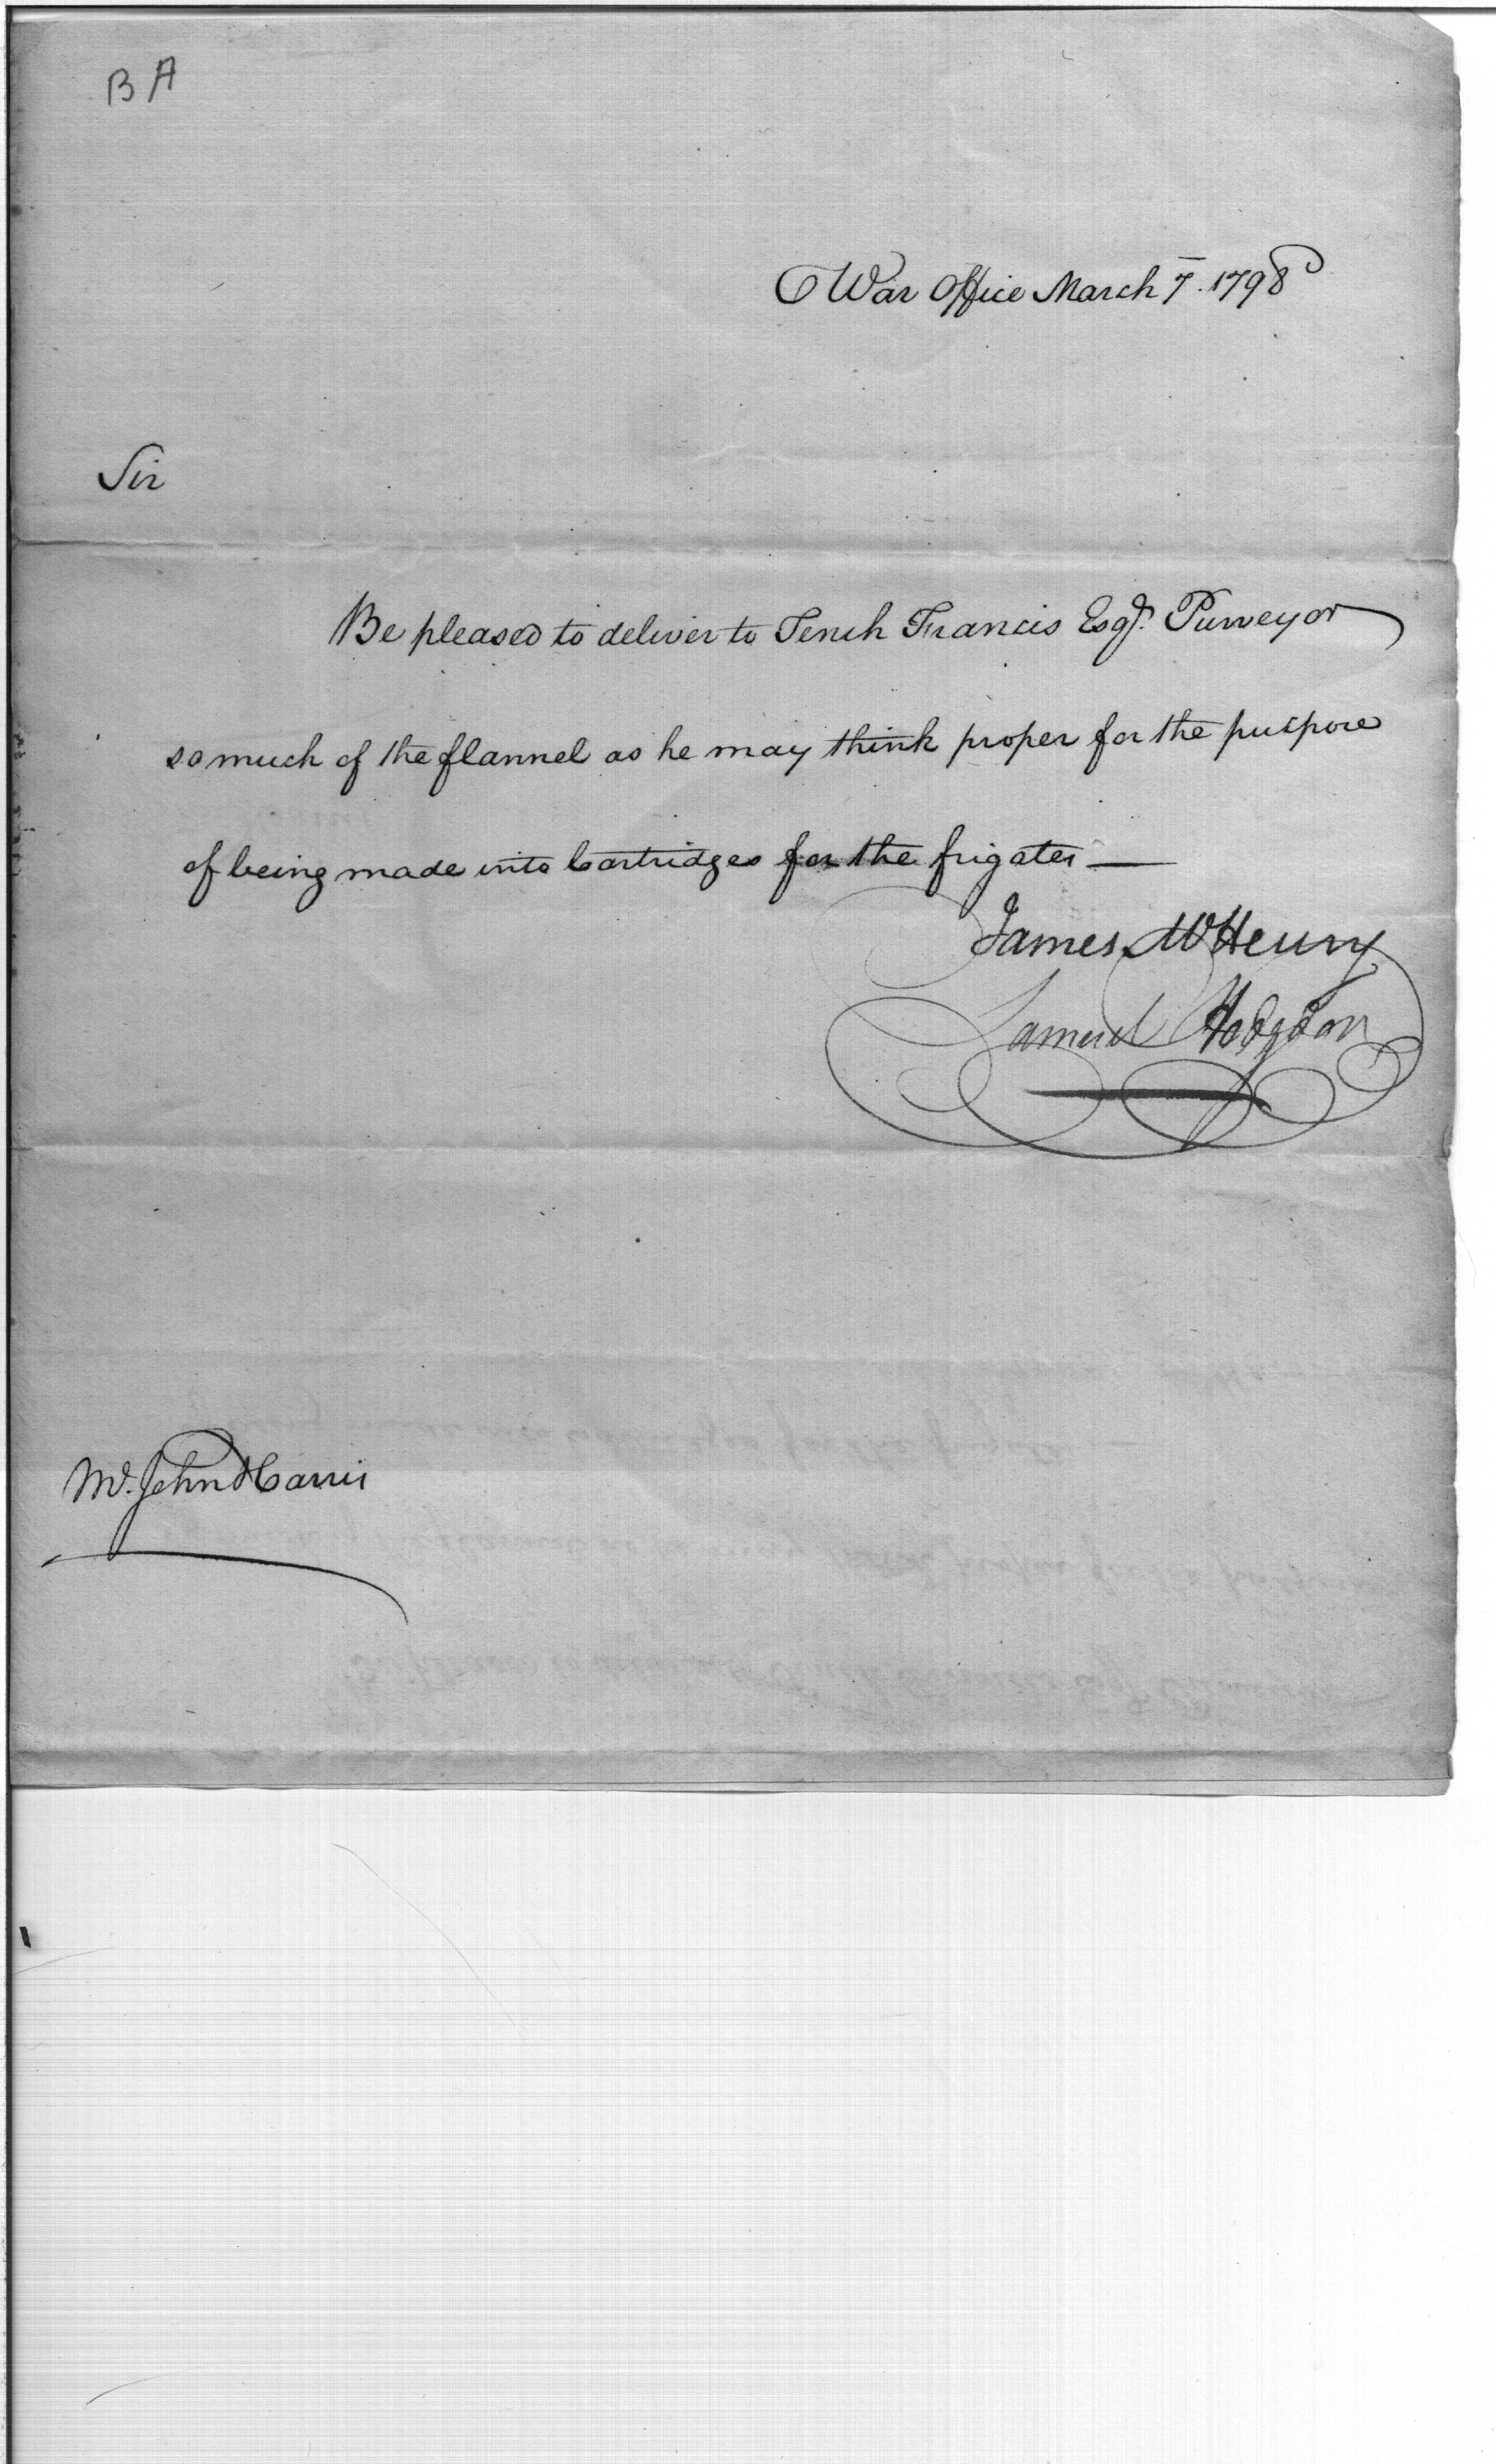 B A
War Office March 7. 1798
Sir
Be pleased to deliver to Tench Francis Esqr. Purveyor
so much of the flannel as he may think proper for the purpose
of being made into Cartridges for the frigates —
James McHenry
Samuel Hodgdon
Mr. John Harris